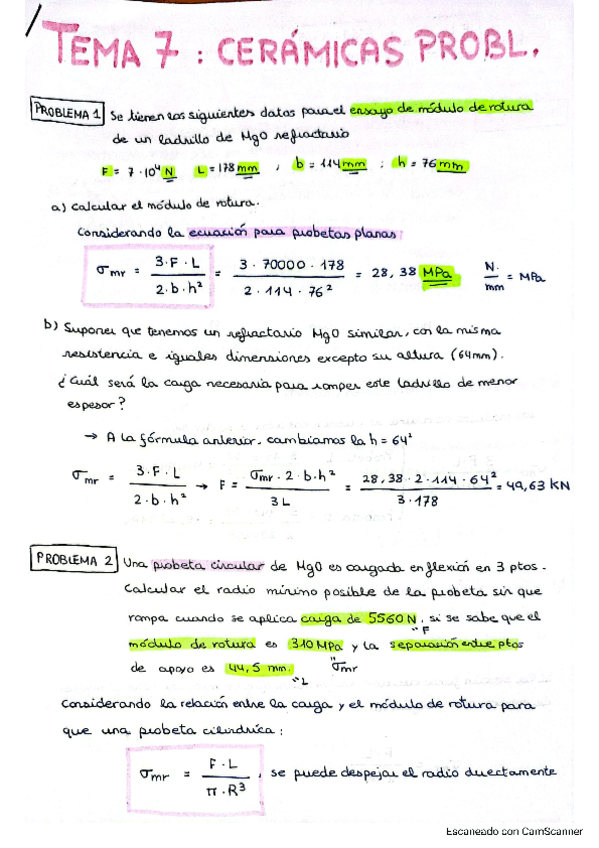 TEMA 7 : CERÁMICAS PROBL.
PROBLEMA 1 Se tienen los siguientes datos para el ensayo de módulo de rotura
de un ladrillo de MgO refractario
F = 7·10⁴ N L = 178 mm ; b = 114 mm ; h = 76 mm
a) Calcular el módulo de rotura.
Considerando la ecuación para probetas planas:
σmr = 3·F·L / 2·b·h² = 3 · 70000 · 178 / 2 · 114 · 76² = 28,38 MPa N. / mm = MPa
b) Suponer que tenemos un refractario MgO similar, con la misma
resistencia e iguales dimensiones excepto su altura (64mm).
¿Cuál será la carga necesaria para romper este ladrillo de menor
espesor?
→ A la fórmula anterior. cambiamos la h = 64²
σmr = 3·F·L / 2·b·h² → F = σmr · 2·b·h² / 3L = 28,38 · 2 · 114 · 64² / 3·178 = 49,63 KN
PROBLEMA 2 Una probeta circular de MgO es cargada en flexión en 3 ptos.
Calcular el radio mínimo posible de la probeta sin que
rompa cuando se aplica carga de 5560 N, si se sabe que el
"F
módulo de rotura es 310 MPa y la separación entre ptos
de apoyo es 44,5 mm. "σmr
"L
Considerando la relación entre la carga y el módulo de rotura para
que una probeta cilíndrica:
σmr = F·L / π·R³ , se puede despejar el radio directamente
Escaneado con CamScanner